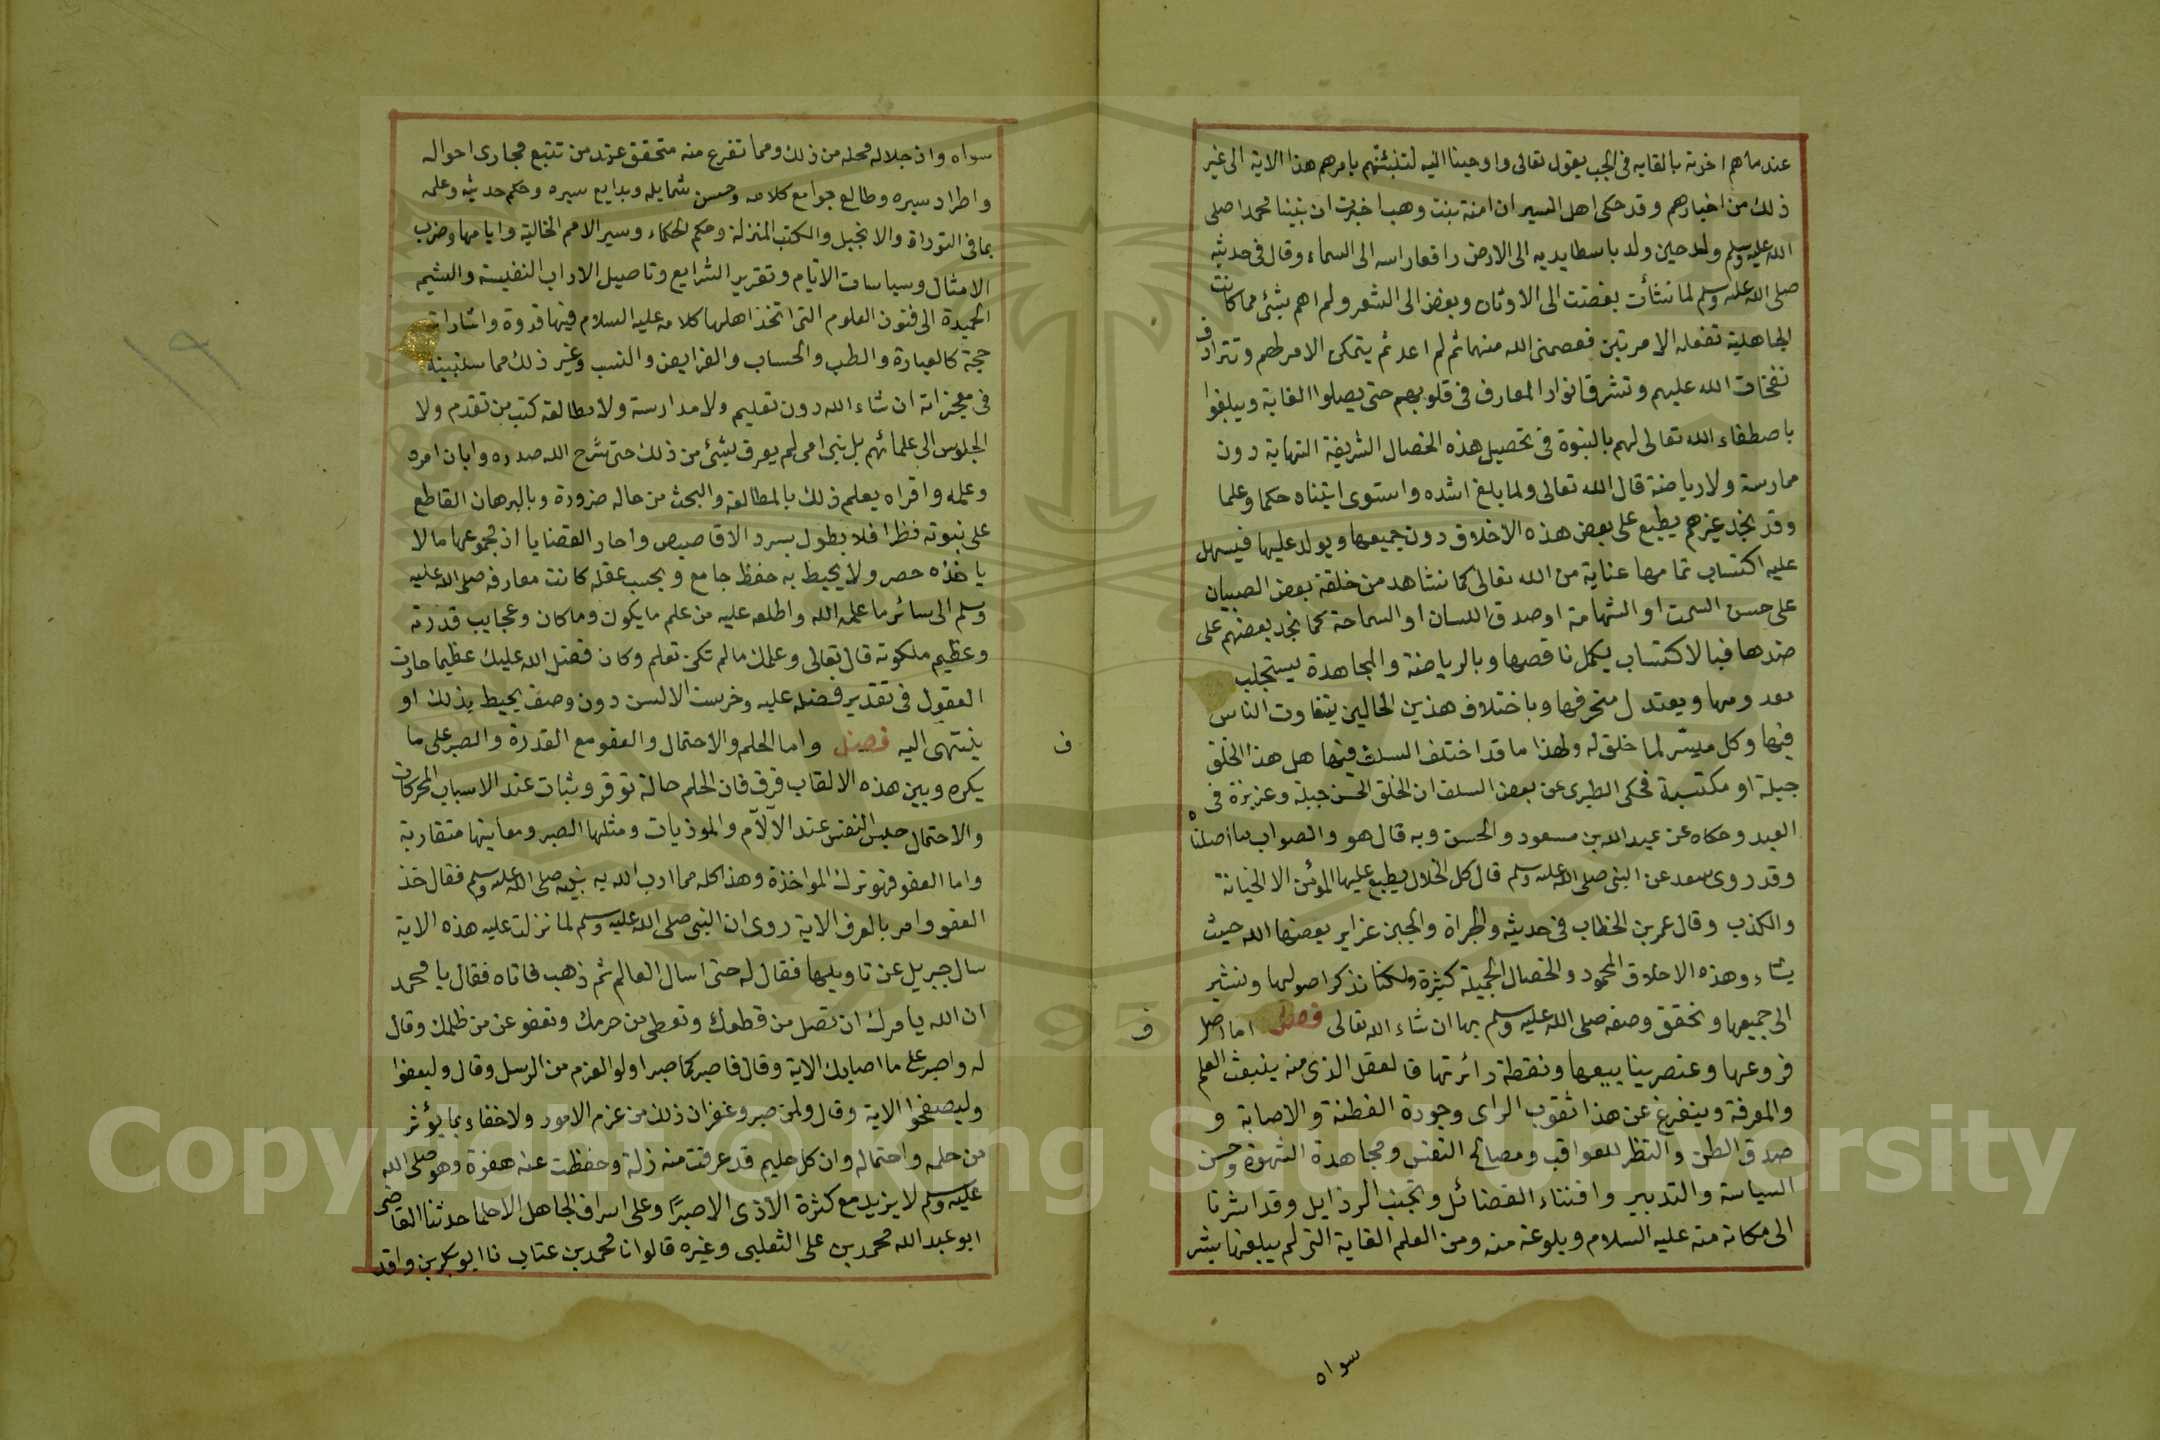 عندما هم اخوته بالقايه فى الجب يقول تعالى واوحينا اليه لتنبئنهم بامرهم هذا الاية الى غير
ذلك من اخبارهم وقد حكى اهل السير ان امنة بنت وهب اخبرت ان نبينا محمدا صلى
الله عليه وسلم ولد حين ولد باسطا يديه الى الارض رافعا راسه الى السماء وقال فى حديثه
صلى الله عليه وسلم لما نشأت بغضت الى الاوثان وبغض الى الشعر ولم اهم بشئ مما كانت
الجاهلية تفعله الا مرتين فعصمنى الله منهما ثم لم اعد ثم يتمكن الامر لهم وتترادف
نفحات الله عليهم وتشرق انوار المعارف فى قلوبهم حتى يصلوا الغاية ويبلغوا
باصطفاء الله تعالى لهم بالنبوة فى تحصيل هذه الخصال الشريفة النهاية دون
ممارسة ولا رياضة قال الله تعالى ولما بلغ اشده واستوى اتيناه حكما وعلما
وقد نجد غيرهم يطبع على بعض هذه الاخلاق دون جميعها ويولد عليها فيسهل
عليه اكتساب تمامها عناية من الله تعالى كما نشاهد من خلقة بعض الصبيان
على حسن السمت او الشهامة او صدق اللسان او السماحة كما نجد بعضهم على
ضدها فبالاكتساب يكمل ناقصها وبالرياضة والمجاهدة يستجلب
معدومها ويعتدل منحرفها وباختلاف هذين الحالين يتفاوت الناس
فيها وكل ميسر لما خلق له ولهذا ما قد اختلف السلف فيها هل هذا الخلق
جبلة او مكتسبة فحكى الطبرى عن بعض السلف ان الخلق الحسن جبلة وغريزة فى
العبد وحكاه عن عبد الله بن مسعود والحسن وبه قال هو والصواب ما اصلناه
وقد روى سعد عن النبى صلى الله عليه وسلم قال كل الخلال يطبع عليها المؤمن الا الخيانة
والكذب وقال عمر بن الخطاب فى حديثه والجراة والجبن غراير يضعها الله حيث
يشاء وهذه الاخلاق المحمود والخصال الجميلة كثيرة ولكنا نذكر اصولها ونشير
الى جميعها ونحقق وصفه صلى الله عليه وسلم بها ان شاء الله تعالى فصل اما اصل
فروعها وعنصر ينابيعها ونقطة دائرتها فالعقل الذى منه ينبعث العلم
والمعرفة ويتفرغ عن هذا ثقوب الراى وجودة الفطنة والاصابة و
صدق الظن والنظر للعواقب ومصالح النفس ومجاهدة الشهوة وحسن
السياسة والتدبير واقتناء الفضائل وتجنب الرذايل وقد اشرنا
الى مكانه منه عليه السلام وبلوغه منه ومن العلم الغاية التى لم يبلغها بشر
سواه
ف
سواه واذ جلاله محله من ذلك ومما تفرع منه متحقق عند من تتبع مجارى احواله
واطراد سيره وطالع جوامع كلامه وحسن شمايله وبدايع سيره وحكم حديثه وعلمه
بما فى التوراة والانجيل والكتب المنزلة وحكم الحكماء وسير الامم الخالية وايامها وضرب
الامثال وسياسات الانام وتقرير الشرايع وتاصيل الاداب النفيسة والشيم
الحميدة الى فنون العلوم التى اتخذ اهلها كلامه عليه السلام فيها قدوة واشاراته
حجة كالعبارة والطب والحساب والفرايض والنسب وغير ذلك مما سنبينه
فى معجزاته ان شاء الله دون تعليم ولا مدارسة ولا مطالعة كتب من تقدم ولا
الجلوس الى علمائهم بل نبى امى لم يعرف بشئ من ذلك حتى شرح الله صدره وابان امره
وعلمه واقراه يعلم ذلك بالمطالعة والبحث من حاله ضرورة وبالبرهان القاطع
على نبوته نظرا فلا يطول بسرد الاقاصيص واحاد القضايا اذ مجموعها ما لا
ياخذه حصر ولا يحيط به حفظ جامع وبحسب عقله كانت معارفه صلى الله عليه
وسلم الى سائر ما علمه الله واطلعه عليه من علم ما يكون وما كان وعجايب قدرته
وعظيم ملكوته قال تعالى وعلمك مالم تكن تعلم وكان فضل الله عليك عظيما حارت
العقول فى تقدير فضله عليه وخرست الالسن دون وصف يحيط بذلك او
ينتهى اليه فصل واما الحلم والاحتمال والعفو مع القدرة والصبر على ما
يكره وبين هذه الالقاب فرق فان الحلم حالة توقر وثبات عند الاسباب المحركات
والاحتمال حبس النفس عند الالام والموذيات ومثلها الصبر ومعاينها متقاربة
واما العفو فهو ترك المواخذة وهذا كله مما ادب الله به نبيه صلى الله عليه وسلم فقال خذ
العفو وامر بالعرف الاية روى ان النبى صلى الله عليه وسلم لما نزلت عليه هذه الاية
سال جبريل عن تاويلها فقال له حتى اسال العالم ثم ذهب فاتاه فقال يا محمد
ان الله يامرك ان تصل من قطعك وتعطى من حرمك وتعفو عن من ظلمك وقال
له واصبر على ما اصابك الاية وقال فاصبر كما صبر اولو العزم من الرسل وقال وليعفوا
وليصفحوا الاية وقال ولمن صبر وغفر ان ذلك من عزم الامور ولا خفاء بما يؤثر
من حلمه واحتماله وان كل حليم قد عرفت منه زلة وحفظت عنه هفوة وهو صلى الله
عليه وسلم لا يزيد مع كثرة الاذى الا صبرا وعلى اسراف الجاهل الا حلما حدثنا القاضى
ابو عبد الله محمد بن على الثعلبى وغيره قالوا نا محمد بن عتاب نا ابو بكر بن واقد
ف
١٩
Copyright © King Saud University